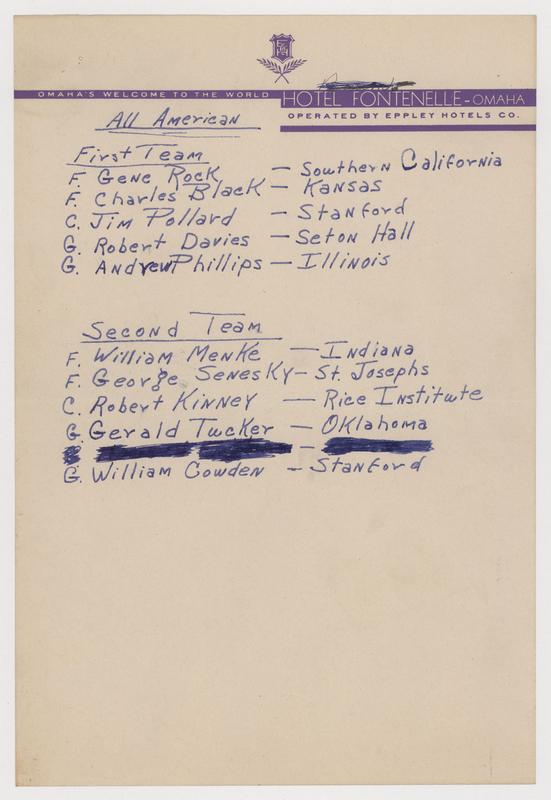 OMAHA'S WELCOME TO THE WORLD
HOTEL FONTENELLE - OMAHA
OPERATED BY EPPLEY HOTELS CO.
All American
First Team
F. Gene Rock — Southern California
F. Charles Black — Kansas
C. Jim Pollard — Stanford
G. Robert Davies — Seton Hall
G. Andrew Phillips — Illinois
Second Team
F. William Menke — Indiana
F. George Senesky — St. Josephs
C. Robert Kinney — Rice Institute
G. Gerald Tucker — Oklahoma
G. William Cowden — Stanford